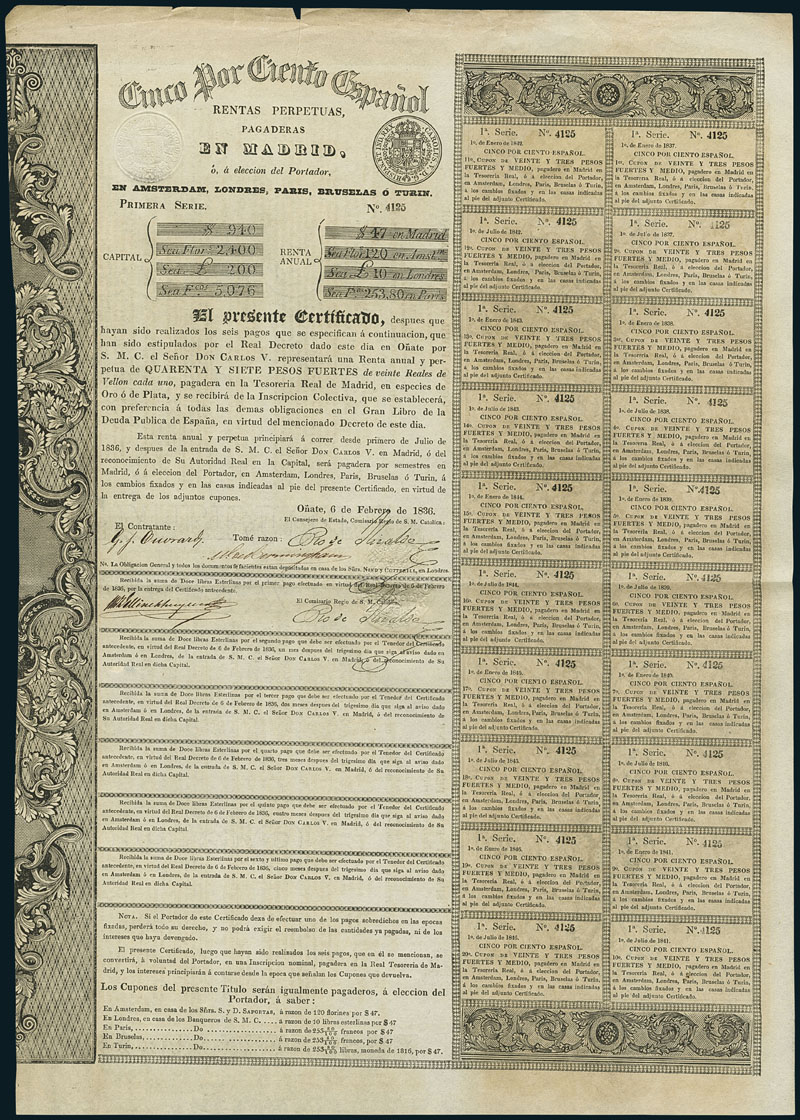 Cinco Por Ciento Español
RENTAS PERPETUAS,
PAGADERAS
EN MADRID,
ó, á eleccion del Portador,
EN AMSTERDAM, LONDRES, PARIS, BRUSELAS Ó TURIN.
PRIMERA SERIE. Nº. 4125
CAPITAL
$ 940
Sea Flor. 2,400
Sea £ 200
Sea F.cos 5,076
RENTA ANUAL
$ 47 en Madrid
Sea Flor 120 en Amst.m
Sea £ 10 en Londres
Sea F.cos 253,80 en Paris
El presente Certificado, despues que
hayan sido realizados los seis pagos que se especifican á continuacion, que
han sido estipulados por el Real Decreto dado este dia en Oñate por
S. M. C. el Señor DON CARLOS V. representará una Renta anual y per-
petua de QUARENTA Y SIETE PESOS FUERTES de veinte Reales de
Vellon cada uno, pagadera en la Tesoreria Real de Madrid, en especies de
Oro ó de Plata, y se recibirá de la Inscripcion Colectiva, que se establecerá,
con preferencia á todas las demas obligaciones en el Gran Libro de la
Deuda Publica de España, en virtud del mencionado Decreto de este dia.
Esta renta anual y perpetua principiará á correr desde primero de Julio de
1836, y despues de la entrada de S. M. C. el Señor DON CARLOS V. en Madrid, ó del
reconocimiento de Su Autoridad Real en la Capital, será pagadera por semestres en
Madrid, ó á eleccion del Portador, en Amsterdam, Londres, Paris, Bruselas ó Turin, á
los cambios fixados y en las casas indicadas al pie del presente Certificado, en virtud de
la entrega de los adjuntos cupones.
Oñate, 6 de Febrero de 1836.
El Consejero de Estado, Comisario Regio de S. M. Catolica:
El Contratante:
Tomé razon:
Nª. La Obligacion General y todos los documentos se facientes estan depositadas en casa de los Sñrs. en Londres
Recibida la suma de Doce libras Esterlinas por el primer pago efectuado en virtud del Real Decreto de 6 de Febrero
de 1836, por la entrega del Certificado antecedente.
El Comisario Regio de S. M. C.
Recibida la suma de Doce Libras Esterlinas por el segundo pago que debe ser efectuado por el Tenedor del Certificado
antecedente, en virtud del Real Decreto de 6 de Febrero de 1836, un mes despues del trigesimo dia que siga al aviso dado en
Amsterdam ó en Londres, de la entrada de S. M. C. el Señor DON CARLOS V. en Madrid, ó del reconocimiento de Su
Autoridad Real en dicha Capital.
Recibida la suma de Doce libras Esterlinas por el tercer pago que debe ser efectuado por el Tenedor del Certificado
antecedente, en virtud del Real Decreto de 6 de Febrero de 1836, dos meses despues del trigesimo dia que siga al aviso dado
en Amsterdam ó en Londres, de la entrada de S. M. C. el Señor DON CARLOS V. en Madrid, ó del reconocimiento de Su
Autoridad Real en dicha Capital.
Recibida la suma de Doce libras Esterlinas por el quarto pago que debe ser efectuado por el Tenedor del Certificado
antecedente, en virtud del Real Decreto de 6 de Febrero de 1836, tres meses despues del trigesimo dia que siga al aviso dado
en Amsterdam ó en Londres, de la entrada de S. M. C. el Señor DON CARLOS V. en Madrid, ó del reconocimiento de Su
Autoridad Real en dicha Capital.
Recibida la suma de Doce libras Esterlinas por el quinto pago que debe ser efectuado por el Tenedor del Certificado
antecedente, en virtud del Real Decreto de 6 de Febrero de 1836, cuatro meses despues del trigesimo dia que siga al aviso dado
en Amsterdam ó en Londres, de la entrada de S. M. C. el Señor DON CARLOS V. en Madrid, ó del reconocimiento de Su
Autoridad Real en dicha Capital.
Recibida la suma de Doce libras Esterlinas por el sexto y ultimo pago que debe ser efectuado por el Tenedor del Certificado
antecedente, en virtud del Real Decreto de 6 de Febrero de 1836, cinco meses despues del trigesimo dia que siga al aviso dado en
Amsterdam ó en Londres, de la entrada de S. M. C. el Señor DON CARLOS V. en Madrid, ó del reconocimiento de Su
Autoridad Real en dicha Capital.
NOTA. Si el Portador de este Certificado dexa de efectuar uno de los pagos sobredichos en las epocas
fixadas, perderá todo su derecho, y no podrá exigir el reembolso de las cantidades ya pagadas, ni de los
intereses que haya devengado.
El presente Certificado, luego que hayan sido realizados los seis pagos, que en él se mencionan, se
convertirá, á voluntad del Portador, en una Inscripcion nominal, pagadera en la Real Tesoreria de Ma-
drid, y los intereses principiarán á contarse desde la epoca que señalan los Cupones que devuelva.
Los Cupones del presente Titulo serán igualmente pagaderos, á eleccion del
Portador, á saber:
En Amsterdam, en casa de los Sñrs. S. y D. SAPORTAS, á razon de 120 florines por $ 47.
En Londres, en casa de los Banqueros de S. M. C. .... á razon de 10 libras esterlinas por $ 47
En Paris,...............Do................ á razon de 253 80/100 francos, por $ 47
En Bruselas,...............Do................ á razon de 253 80/100 francos por $ 47
En Turin,...............Do................ á razon de 253 80/100 libras, moneda de 1816, por $ 47.
1ª. Serie. Nº. 4125
1º. de Enero de 1842.
CINCO POR CIENTO ESPAÑOL.
11º. CUPON DE VEINTE Y TRES PESOS
FUERTES Y MEDIO, pagadero en Madrid en
la Tesoreria Real, ó á eleccion del Portador,
en Amsterdam, Londres, Paris, Bruselas ó Turin,
á los cambios fixados y en las casas indicadas
al pie del adjunto Certificado.
1ª. Serie. Nº. 4125
1º. de Julio de 1842.
CINCO POR CIENTO ESPAÑOL.
12º. CUPON DE VEINTE Y TRES PESOS
FUERTES Y MEDIO, pagadero en Madrid en
la Tesoreria Real, ó á eleccion del Portador,
en Amsterdam, Londres, Paris, Bruselas ó Turin,
á los cambios fixados y en las casas indicadas
al pie del adjunto Certificado.
1ª. Serie. Nº. 4125
1º. de Enero de 1843.
CINCO POR CIENTO ESPAÑOL.
13º. CUPON DE VEINTE Y TRES PESOS
FUERTES Y MEDIO, pagadero en Madrid en
la Tesoreria Real, ó á eleccion del Portador,
en Amsterdam, Londres, Paris, Bruselas ó Turin,
á los cambios fixados y en las casas indicadas
al pie del adjunto Certificado.
1ª. Serie. Nº. 4125
1º. de Julio de 1843.
CINCO POR CIENTO ESPAÑOL.
14º. CUPON DE VEINTE Y TRES PESOS
FUERTES Y MEDIO, pagadero en Madrid en
la Tesoreria Real, ó á eleccion del Portador,
en Amsterdam, Londres, Paris, Bruselas ó Turin,
á los cambios fixados y en las casas indicadas
al pie del adjunto Certificado.
1ª. Serie. Nº. 4125
1º. de Enero de 1844.
CINCO POR CIENTO ESPAÑOL.
15º. CUPON DE VEINTE Y TRES PESOS
FUERTES Y MEDIO, pagadero en Madrid en
la Tesoreria Real, ó á eleccion del Portador,
en Amsterdam, Londres, Paris, Bruselas ó Turin,
á los cambios fixados y en las casas indicadas
al pie del adjunto Certificado.
1ª. Serie. Nº. 4125
1º. de Julio de 1844.
CINCO POR CIENTO ESPAÑOL.
16º. CUPON DE VEINTE Y TRES PESOS
FUERTES Y MEDIO, pagadero en Madrid en
la Tesoreria Real, ó á eleccion del Portador,
en Amsterdam, Londres, Paris, Bruselas ó Turin,
á los cambios fixados y en las casas indicadas
al pie del adjunto Certificado.
1ª. Serie. Nº. 4125
1º. de Enero de 1845.
CINCO POR CIENTO ESPAÑOL.
17º. CUPON DE VEINTE Y TRES PESOS
FUERTES Y MEDIO, pagadero en Madrid en
la Tesoreria Real, ó á eleccion del Portador,
en Amsterdam, Londres, Paris, Bruselas ó Turin,
á los cambios fixados y en las casas indicadas
al pie del adjunto Certificado.
1ª. Serie. Nº. 4125
1º. de Julio de 1845.
CINCO POR CIENTO ESPAÑOL.
18º. CUPON DE VEINTE Y TRES PESOS
FUERTES Y MEDIO, pagadero en Madrid en
la Tesoreria Real, ó á eleccion del Portador,
en Amsterdam, Londres, Paris, Bruselas ó Turin,
á los cambios fixados y en las casas indicadas
al pie del adjunto Certificado.
1ª. Serie. Nº. 4125
1º. de Enero de 1846.
CINCO POR CIENTO ESPAÑOL.
19º. CUPON DE VEINTE Y TRES PESOS
FUERTES Y MEDIO, pagadero en Madrid en
la Tesoreria Real, ó á eleccion del Portador,
en Amsterdam, Londres, Paris, Bruselas ó Turin,
á los cambios fixados y en las casas indicadas
al pie del adjunto Certificado.
1ª. Serie. Nº. 4125
1º. de Julio de 1846.
CINCO POR CIENTO ESPAÑOL.
20º. CUPON DE VEINTE Y TRES PESOS
FUERTES Y MEDIO, pagadero en Madrid en
la Tesoreria Real, ó á eleccion del Portador,
en Amsterdam, Londres, Paris, Bruselas ó Turin,
á los cambios fixados y en las casas indicadas
al pie del adjunto Certificado.
1ª. Serie. Nº. 4125
1º. de Enero de 1837.
CINCO POR CIENTO ESPAÑOL.
1er. CUPON DE VEINTE Y TRES PESOS
FUERTES Y MEDIO, pagadero en Madrid en
la Tesoreria Real, ó á eleccion del Portador,
en Amsterdam, Londres, Paris, Bruselas ó Turin,
á los cambios fixados y en las casas indicadas
al pie del adjunto Certificado.
1ª. Serie. Nº. 4125
1º. de Julio de 1837.
CINCO POR CIENTO ESPAÑOL.
2º. CUPON DE VEINTE Y TRES PESOS
FUERTES Y MEDIO, pagadero en Madrid en
la Tesoreria Real, ó á eleccion del Portador,
en Amsterdam, Londres, Paris, Bruselas ó Turin,
á los cambios fixados y en las casas indicadas
al pie del adjunto Certificado.
1ª. Serie. Nº. 4125
1º. de Enero de 1838.
CINCO POR CIENTO ESPAÑOL.
3er. CUPON DE VEINTE Y TRES PESOS
FUERTES Y MEDIO, pagadero en Madrid en
la Tesoreria Real, ó á eleccion del Portador,
en Amsterdam, Londres, Paris, Bruselas ó Turin,
á los cambios fixados y en las casas indicadas
al pie del adjunto Certificado.
1ª. Serie. Nº. 4125
1º. de Julio de 1838.
CINCO POR CIENTO ESPAÑOL.
4º. CUPON DE VEINTE Y TRES PESOS
FUERTES Y MEDIO, pagadero en Madrid en
la Tesoreria Real, ó á eleccion del Portador,
en Amsterdam, Londres, Paris, Bruselas ó Turin,
á los cambios fixados y en las casas indicadas
al pie del adjunto Certificado.
1ª. Serie. Nº. 4125
1º. de Enero de 1839.
CINCO POR CIENTO ESPAÑOL.
5º. CUPON DE VEINTE Y TRES PESOS
FUERTES Y MEDIO, pagadero en Madrid en
la Tesoreria Real, ó á eleccion del Portador,
en Amsterdam, Londres, Paris, Bruselas ó Turin,
á los cambios fixados y en las casas indicadas
al pie del adjunto Certificado.
1ª. Serie. Nº. 4125
1º. de Julio de 1839.
CINCO POR CIENTO ESPAÑOL.
6º. CUPON DE VEINTE Y TRES PESOS
FUERTES Y MEDIO, pagadero en Madrid en
la Tesoreria Real, ó á eleccion del Portador,
en Amsterdam, Londres, Paris, Bruselas ó Turin,
á los cambios fixados y en las casas indicadas
al pie del adjunto Certificado.
1ª. Serie. Nº. 4125
1º. de Enero de 1840.
CINCO POR CIENTO ESPAÑOL.
7º. CUPON DE VEINTE Y TRES PESOS
FUERTES Y MEDIO, pagadero en Madrid en
la Tesoreria Real, ó á eleccion del Portador,
en Amsterdam, Londres, Paris, Bruselas ó Turin,
á los cambios fixados y en las casas indicadas
al pie del adjunto Certificado.
1ª. Serie. Nº. 4125
1º. de Julio de 1840.
CINCO POR CIENTO ESPAÑOL.
8º. CUPON DE VEINTE Y TRES PESOS
FUERTES Y MEDIO, pagadero en Madrid en
la Tesoreria Real, ó á eleccion del Portador,
en Amsterdam, Londres, Paris, Bruselas ó Turin,
á los cambios fixados y en las casas indicadas
al pie del adjunto Certificado.
1ª. Serie. Nº. 4125
1º. de Enero de 1841.
CINCO POR CIENTO ESPAÑOL.
9º. CUPON DE VEINTE Y TRES PESOS
FUERTES Y MEDIO, pagadero en Madrid en
la Tesoreria Real, ó á eleccion del Portador,
en Amsterdam, Londres, Paris, Bruselas ó Turin,
á los cambios fixados y en las casas indicadas
al pie del adjunto Certificado.
1ª. Serie. Nº. 4125
1º. de Julio de 1841.
CINCO POR CIENTO ESPAÑOL.
10º. CUPON DE VEINTE Y TRES PESOS
FUERTES Y MEDIO, pagadero en Madrid en
la Tesoreria Real, ó á eleccion del Portador,
en Amsterdam, Londres, Paris, Bruselas ó Turin,
á los cambios fixados y en las casas indicadas
al pie del adjunto Certificado.